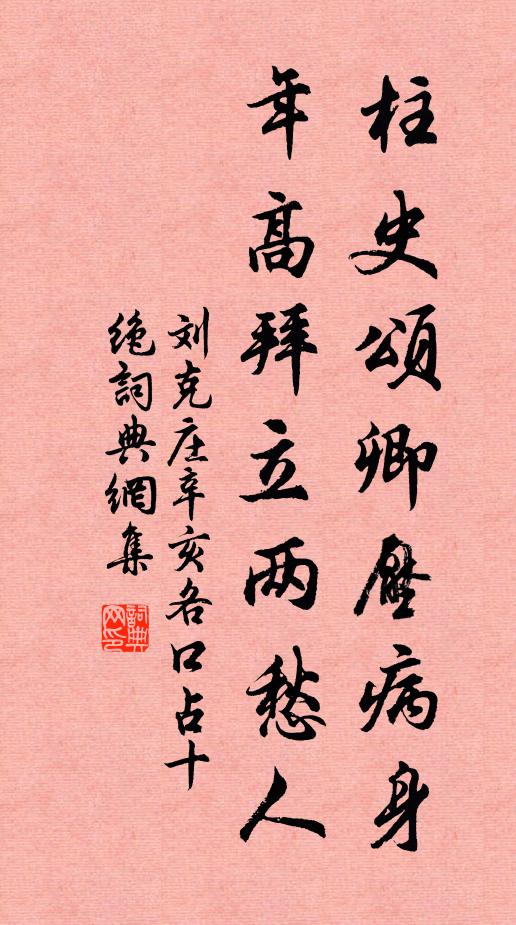 柱史頌卿壓病身
年高拜立两愁人
刘克庄辛亥各口占十
绝詞典網集
詞典網印